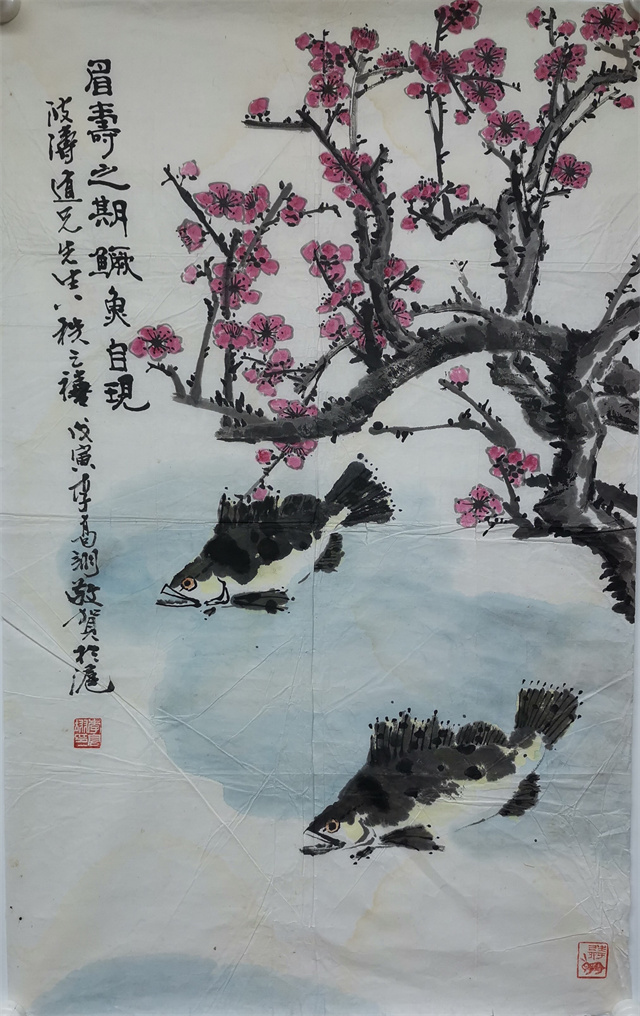 眉壽之期鱖魚自現
濤道兄先生八秩之禧 戊寅李敬賀於滬